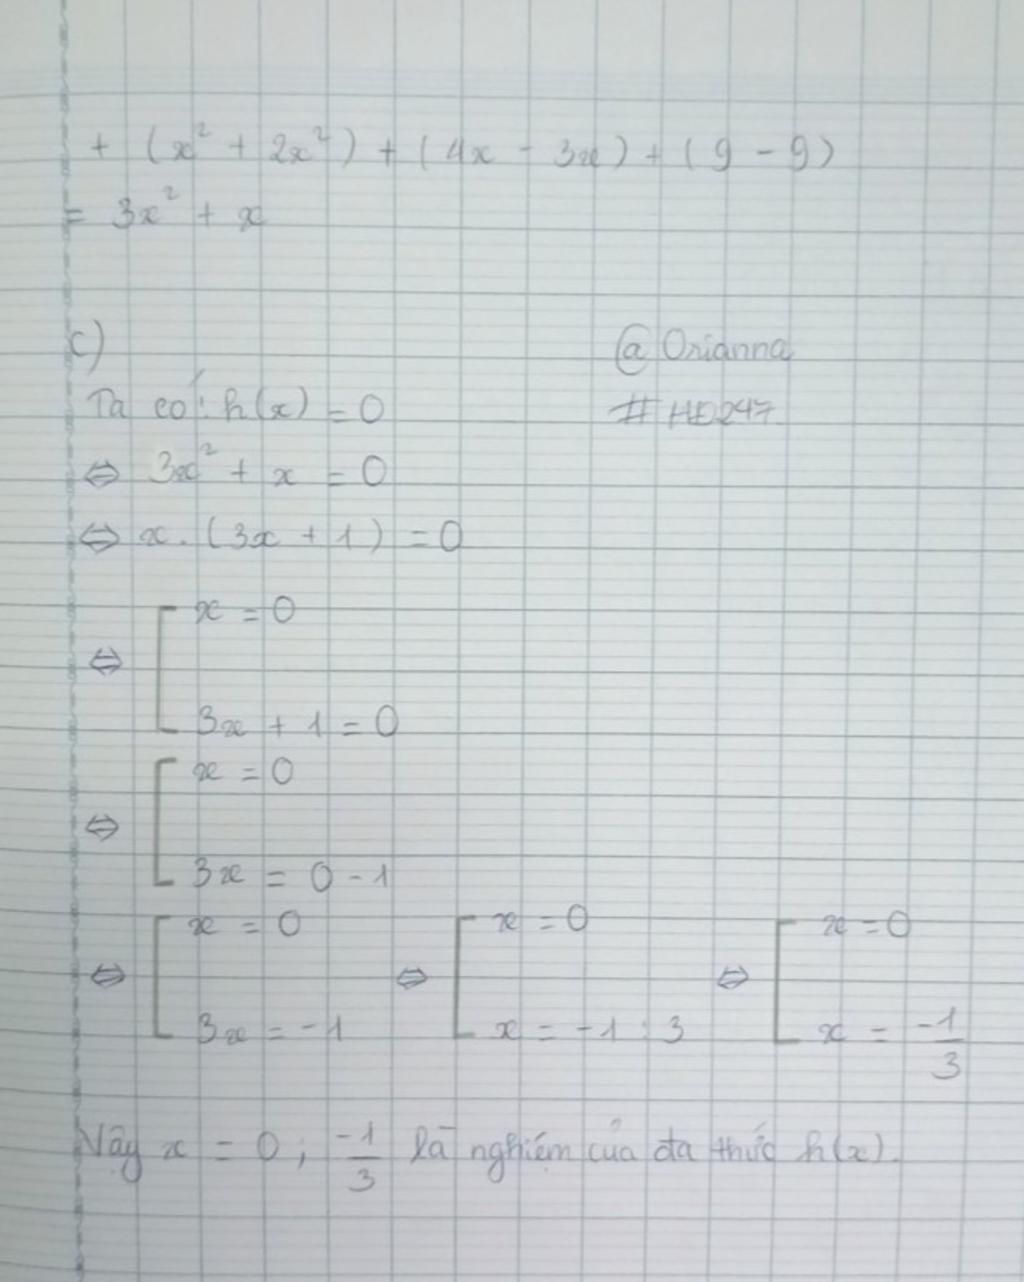 + (x² + 2x²) + (4x - 3x) + (9 - 9)
= 3x² + x
c)
@ Orianna
Ta có: h(x) = 0
# HĐ247
⇔ 3x² + x = 0
⇔ x. (3x + 1) = 0
⇔ [ x = 0
3x + 1 = 0
⇔ [ x = 0
3x = 0 - 1
⇔ [ x = 0 ⇔ [ x = 0 ⇔ [ x = 0
3x = -1 x = -1 : 3 x = -1/3
Vậy x = 0; -1/3 là nghiệm của đa thức h(x).